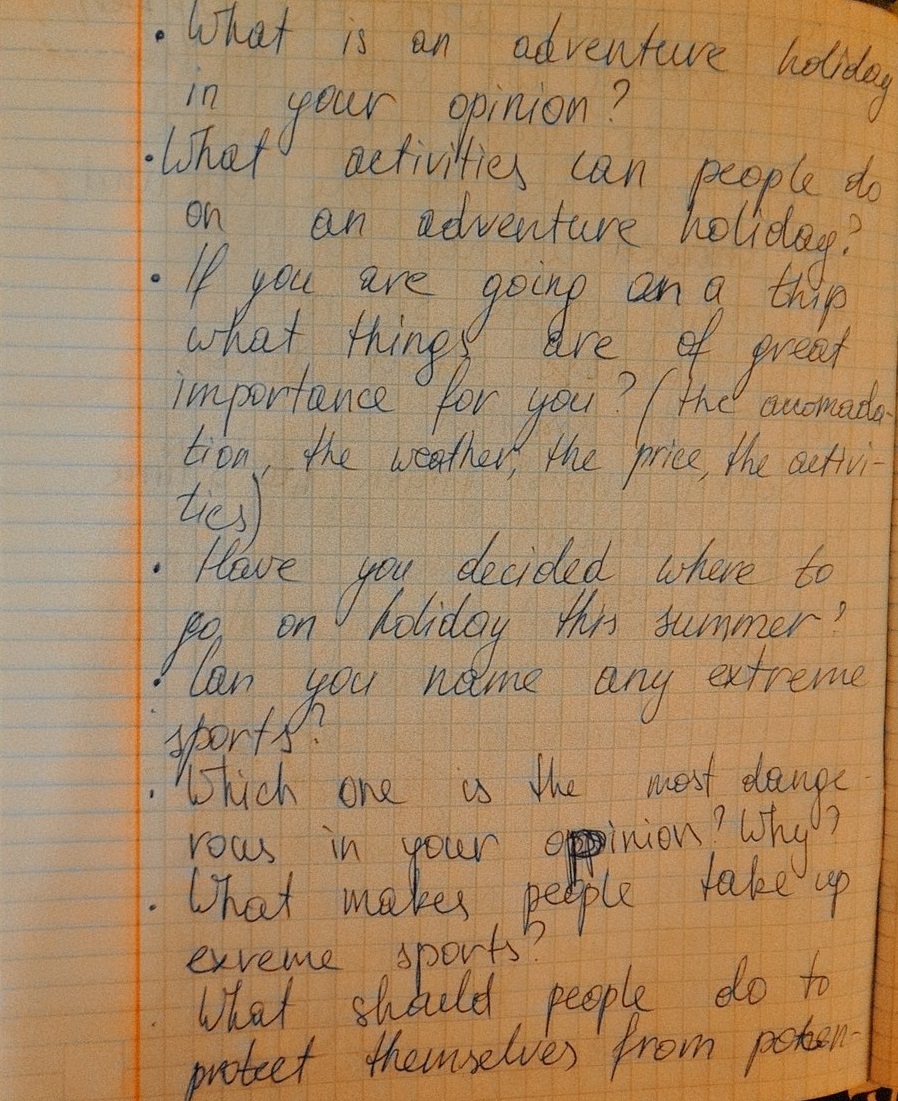 • What is an adventure holiday
in your opinion?
• What activities can people do
on an adventure holiday?
• If you are going on a thip
what things are of great
importance for you? (the auomada-
tion, the weather, the price, the activi-
ties)
• Have you decided where to
go on holiday this summer?
• Can you name any extreme
sports?
• Which one is the most dange-
rous in your oppinion? Why?
• What makes people take up
exreme sports?
• What should people do to
protect themselves from poten-